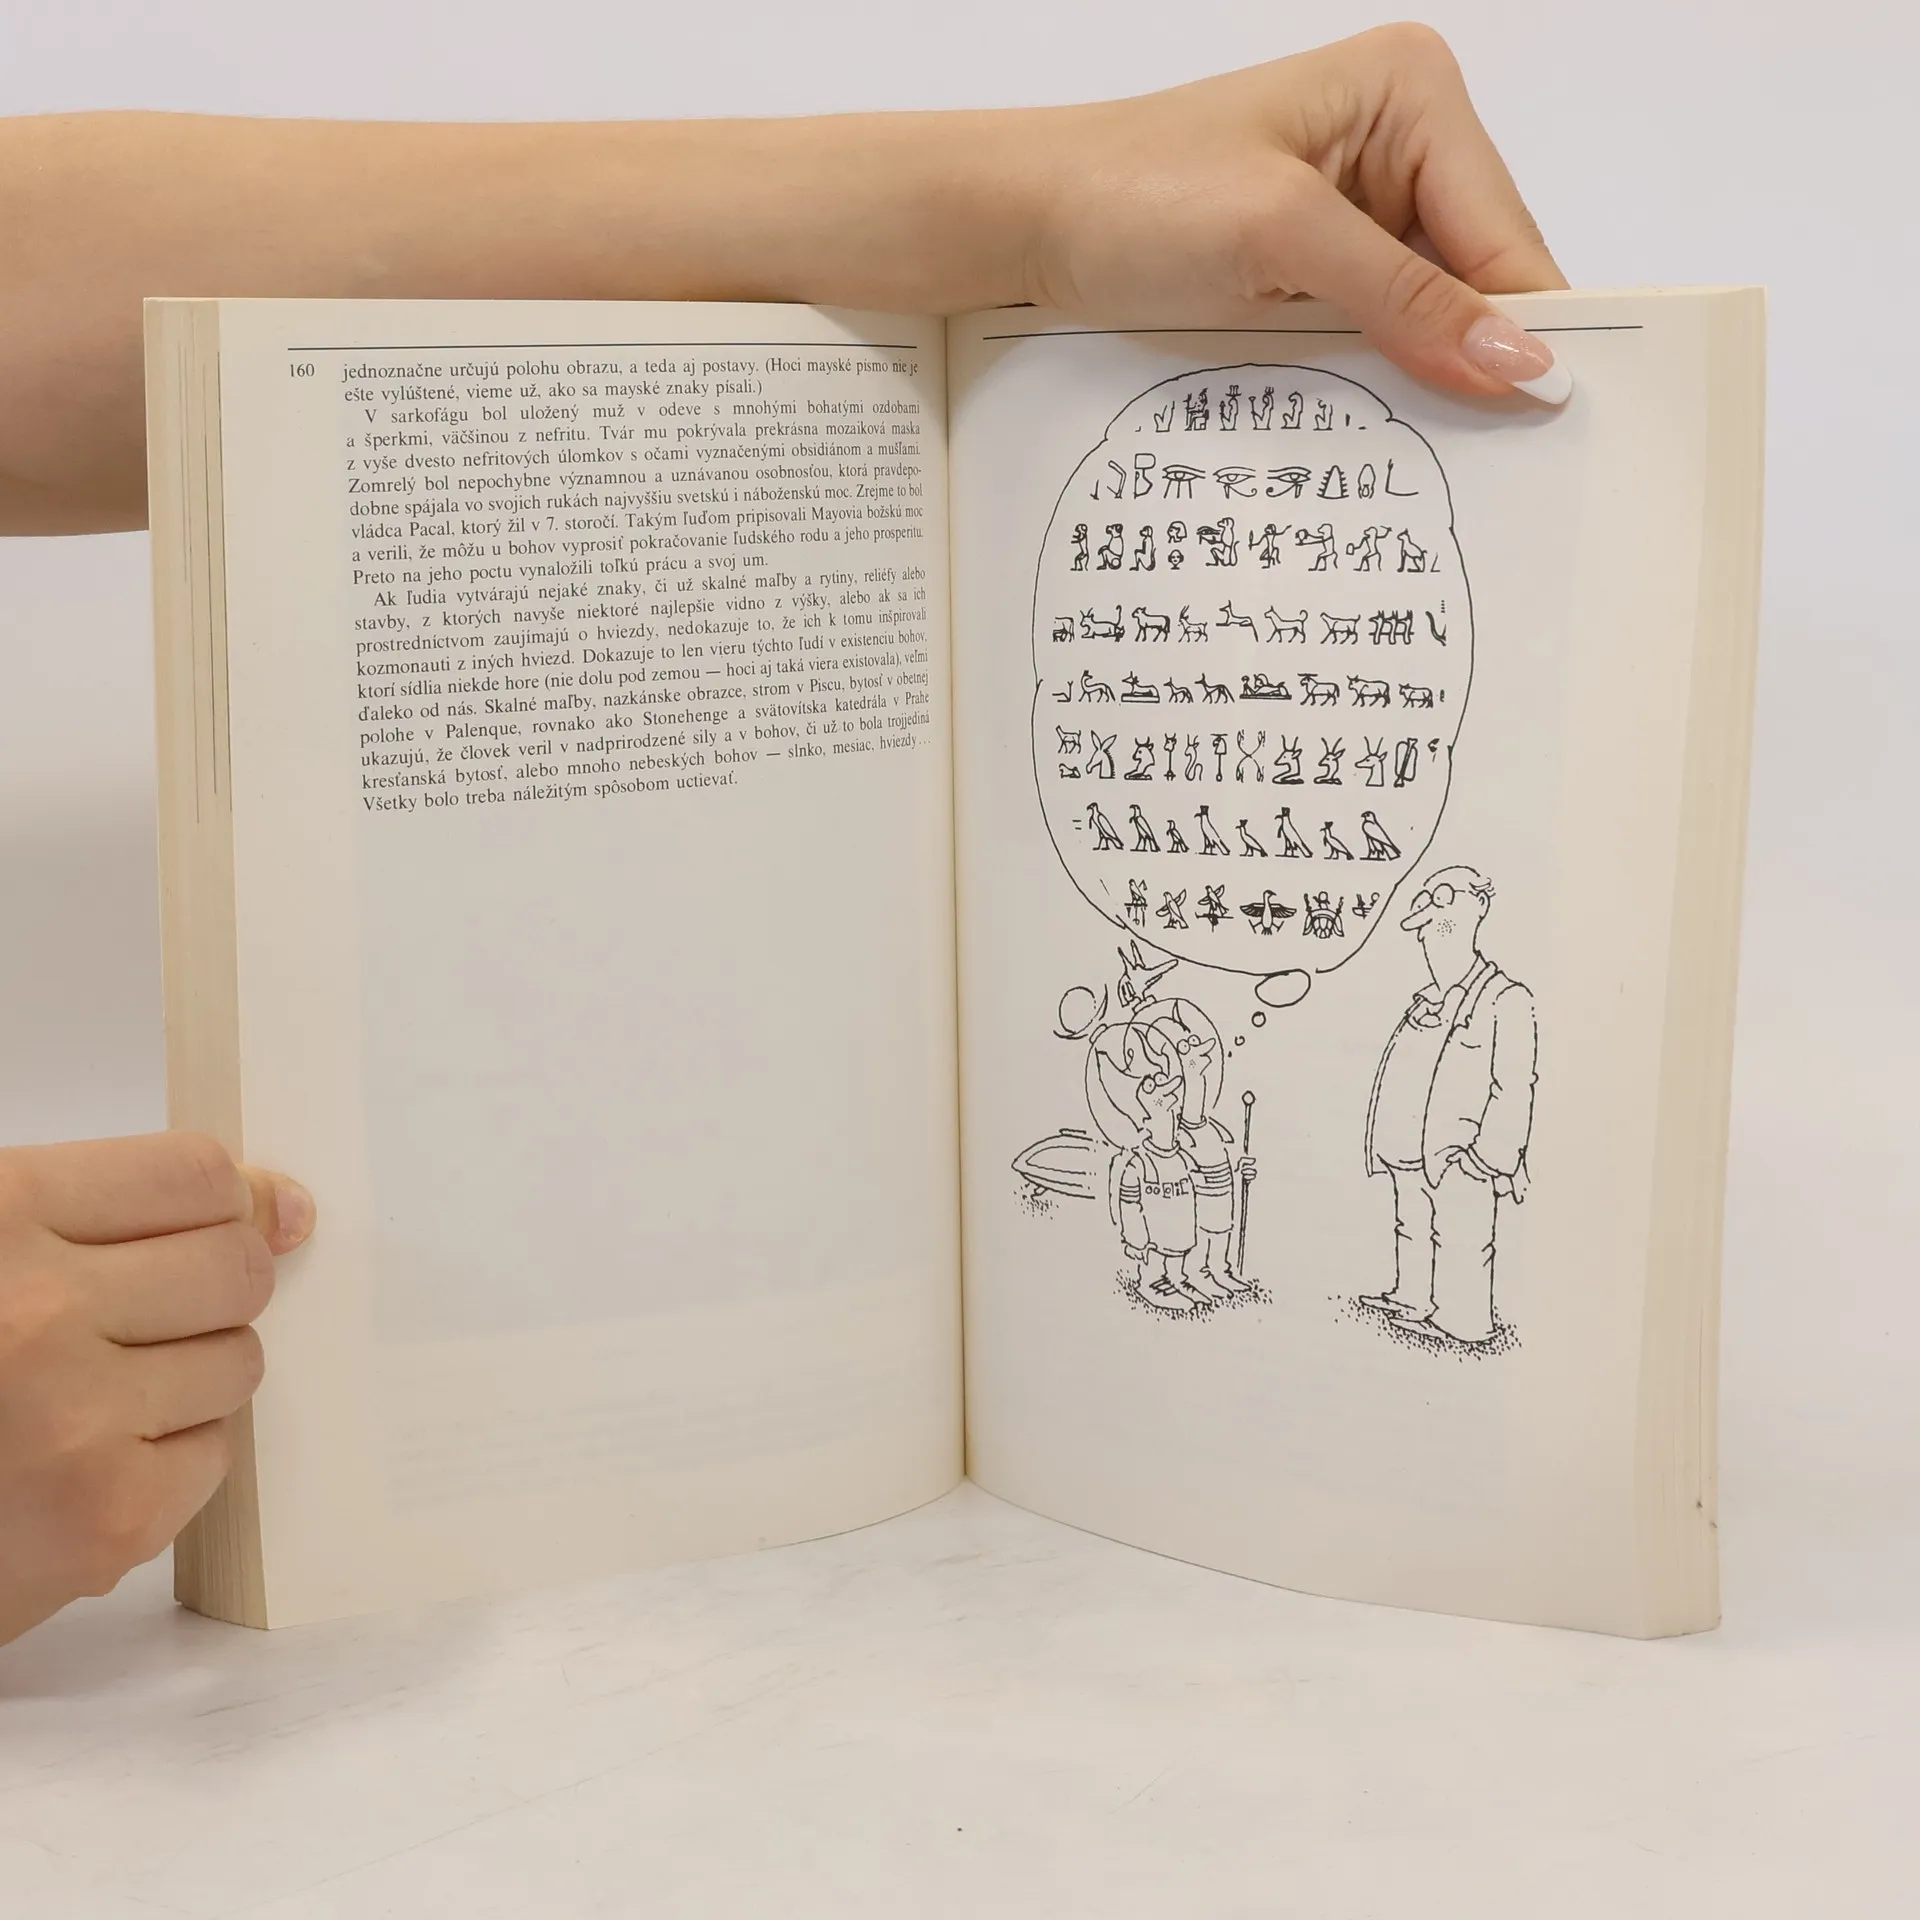 160
jednoznačne určujú polohu obrazu, a teda aj postavy. (Hoci mayské písmo nie je
ešte vylúštené, vieme už, ako sa mayské znaky písali.)
V sarkofágu bol uložený muž v odeve s mnohými bohatými ozdobami
a šperkmi, väčšinou z nefritu. Tvár mu pokrývala prekrásna mozaiková maska
z vyše dvesto nefritových úlomkov s očami vyznačenými obsidiánom a mušľami.
Zomrelý bol nepochybne významnou a uznávanou osobnosťou, ktorá pravdepo-
dobne spájala vo svojich rukách najvyššiu svetskú i náboženskú moc. Zrejme to bol
vládca Pacal, ktorý žil v 7. storočí. Takým ľuďom pripisovali Mayovia božskú moc
a verili, že môžu u bohov vyprosiť pokračovanie ľudského rodu a jeho prosperitu.
Preto na jeho poctu vynaložili toľkú prácu a svoj um.
Ak ľudia vytvárajú nejaké znaky, či už skalné maľby a rytiny, reliéfy alebo
stavby, z ktorých navyše niektoré najlepšie vidno z výšky, alebo ak sa ich
prostredníctvom zaujímajú o hviezdy, nedokazuje to, že ich k tomu inšpirovali
kozmonauti z iných hviezd. Dokazuje to len vieru týchto ľudí v existenciu bohov,
ktorí sídlia niekde hore (nie dolu pod zemou — hoci aj taká viera existovala), veľmi
ďaleko od nás. Skalné maľby, nazkánske obrazce, strom v Piscu, bytosť v obetnej
polohe v Palenque, rovnako ako Stonehenge a svätovítska katedrála v Prahe
ukazujú, že človek veril v nadprirodzené sily a v bohov, či už to bola trojjediná
kresťanská bytosť, alebo mnoho nebeských bohov — slnko, mesiac, hviezdy…
Všetky bolo treba náležitým spôsobom uctievať.